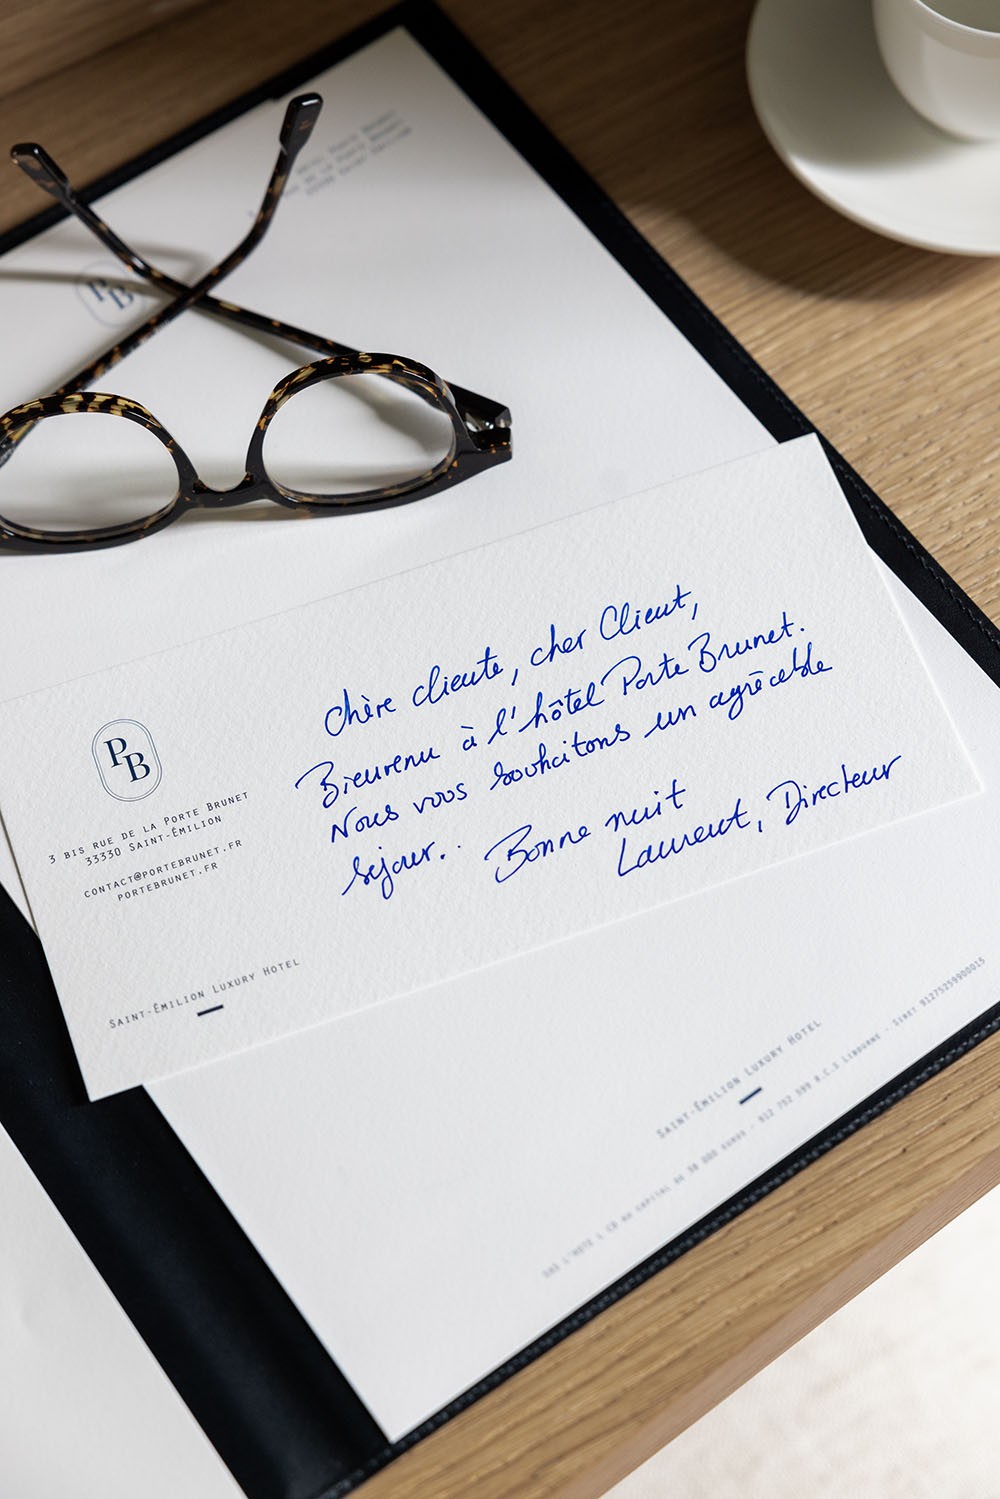 PB
PB
3 BIS RUE DE LA PORTE BRUNET
33330 SAINT-ÉMILION
CONTACT@PORTEBRUNET.FR
PORTEBRUNET.FR
Chère cliente, cher Client,
Bienvenu à l'hôtel Porte Brunet.
Nous vous souhaitons un agréable
séjour..
Bonne nuit
Laurent, Directeur
SAINT-ÉMILION LUXURY HOTEL
SAINT-ÉMILION LUXURY HOTEL
AU CAPITAL DE EUROS - 912 752 599 R.C.S LIBOURNE - SIRET 91275259900015